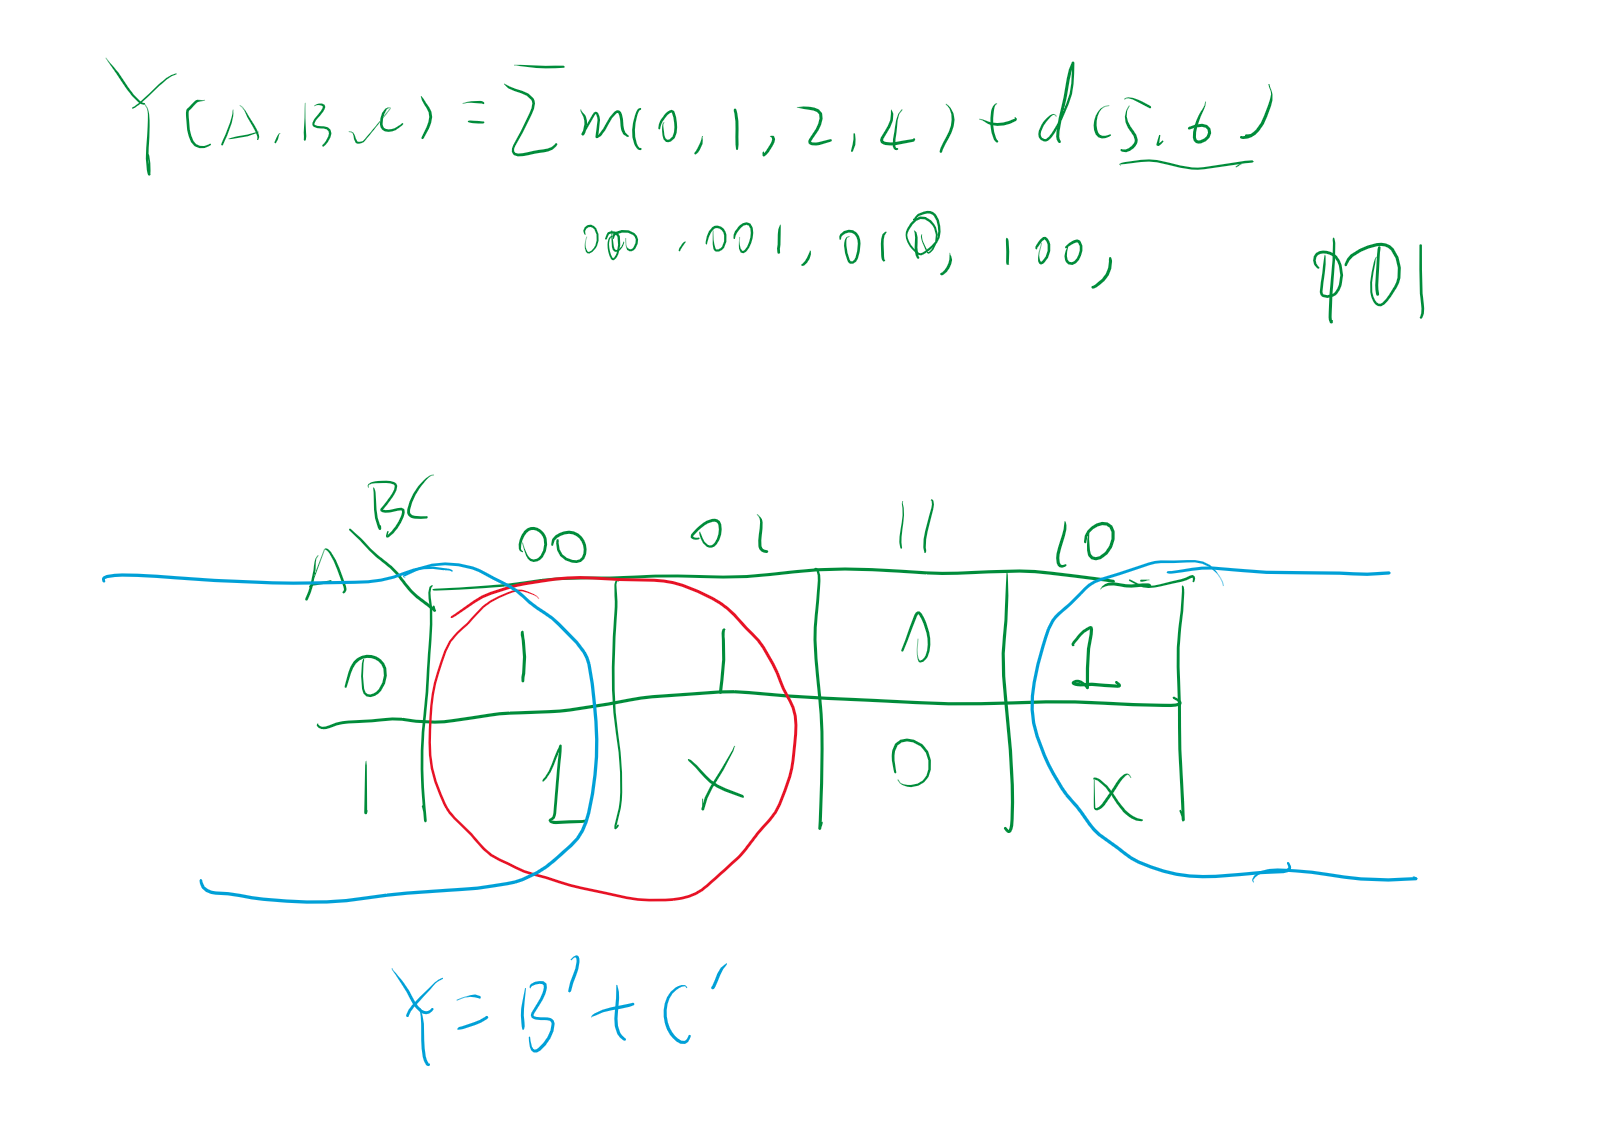 Y(A,B,C) = Σm(0,1,2,4) + d(5,6)
000, 001, 010, 100,
101
BC
A 00 01 11 10
0 1 1 0 1
1 1 X 0 X
Y = B' + C'